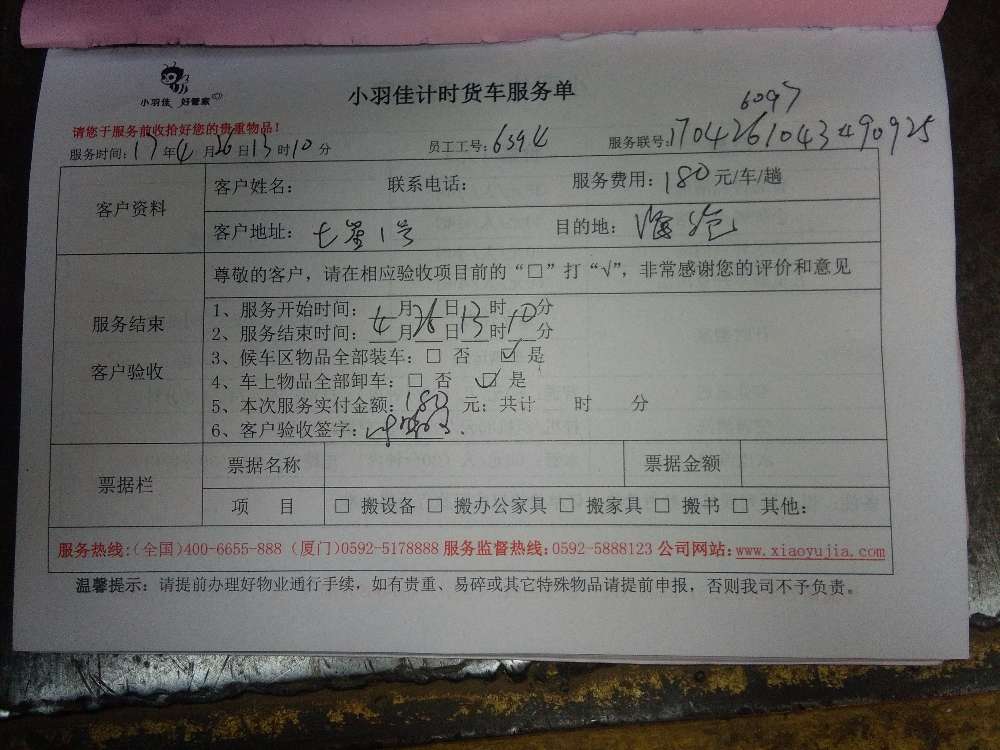 小羽佳 好管家
小羽佳计时货车服务单
6097
请您于服务前收拾好您的贵重物品！
服务时间：17年4月26日13时10分 员工工号：6394 服务联号：1704261043490925
客户资料
客户姓名： 联系电话： 服务费用：180元/车/趟
客户地址：七星1号 目的地：海沧
服务结束
客户验收
尊敬的客户，请在相应验收项目前的“□”打“√”，非常感谢您的评价和意见
1、服务开始时间：__月__日__时__分
2、服务结束时间：4月26日13时10分
3、候车区物品全部装车：□ 否 ☑ 是
4、车上物品全部卸车：□ 否 ☑ 是
5、本次服务实付金额：180 元；共计 时 分
6、客户验收签字：
票据栏
票据名称 票据金额
项 目 □ 搬设备 □ 搬办公家具 □ 搬家具 □ 搬书 □ 其他：
服务热线：(全国)400-6655-888 (厦门)0592-5178888 服务监督热线：0592-5888123 公司网站：www.xiaoyujia.com
温馨提示：请提前办理好物业通行手续，如有贵重、易碎或其它特殊物品请提前申报，否则我司不予负责。